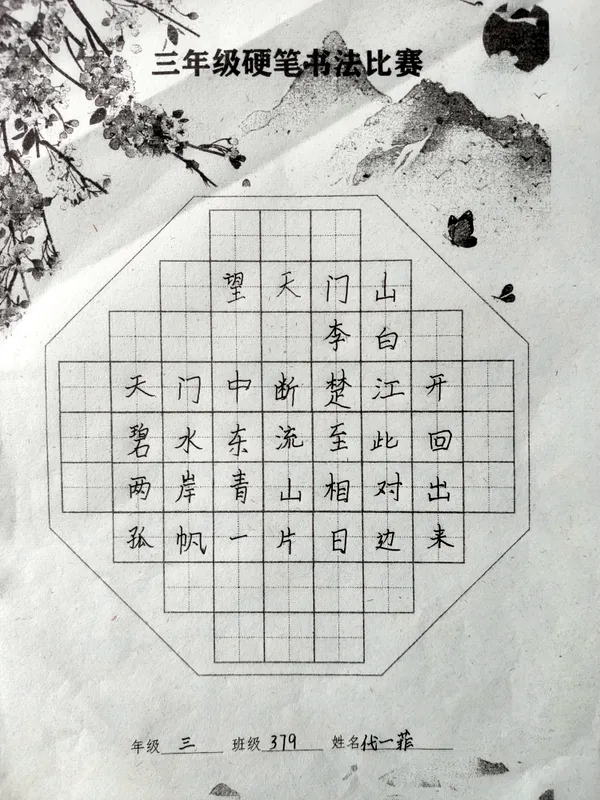 三年级硬笔书法比赛
望天门山
李白
天门中断楚江开
碧水东流至此回
两岸青山相对出
孤帆一片日边来
年级 三 班级 379 姓名 代一菲